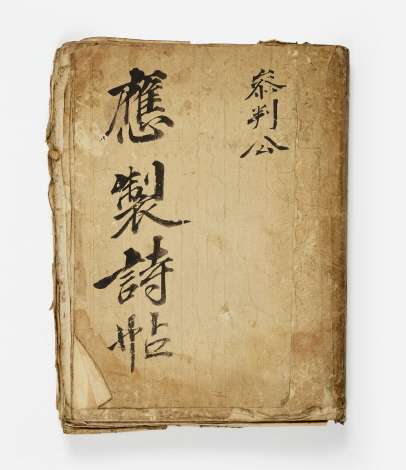 參判公
應製詩帖